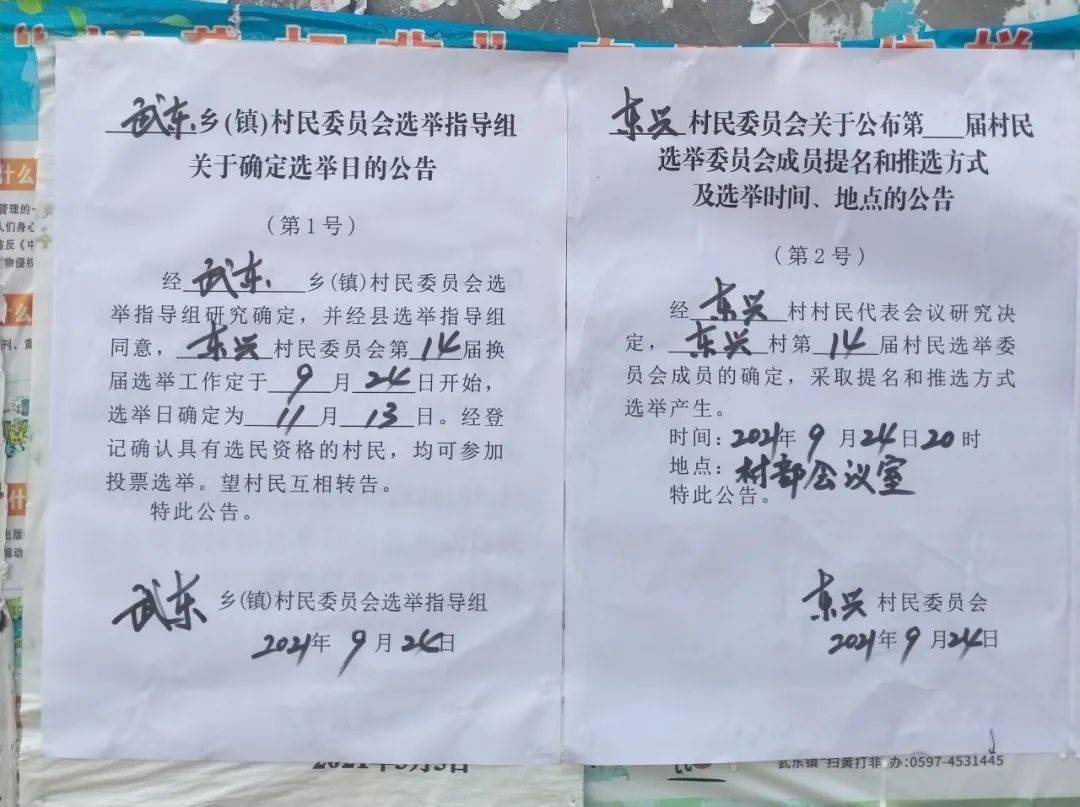 武东乡(镇)村民委员会选举指导组
关于确定选举日的公告
(第1号)
经武东乡(镇)村民委员会选
举指导组研究确定，并经县选举指导组
同意，东兴村民委员会第14届换
届选举工作定于9月24日开始，
选举日确定为11月13日。经登
记确认具有选民资格的村民，均可参加
投票选举。望村民互相转告。
特此公告。
武东乡(镇)村民委员会选举指导组
2021年9月24日
东兴村民委员会关于公布第___届村民
选举委员会成员提名和推选方式
及选举时间、地点的公告
(第2号)
经东兴村村民代表会议研究决
定，东兴村第14届村民选举委
员会成员的确定，采取提名和推选方式
选举产生。
时间：2021年9月24日20时
地点：村部会议室
特此公告。
东兴村民委员会
2021年9月24日
什么
管理的一
人们身心
违反《中
物侵权
什么
刊、黄
什
出版
编动
武东镇"扫黄打非"办:0597-4531445